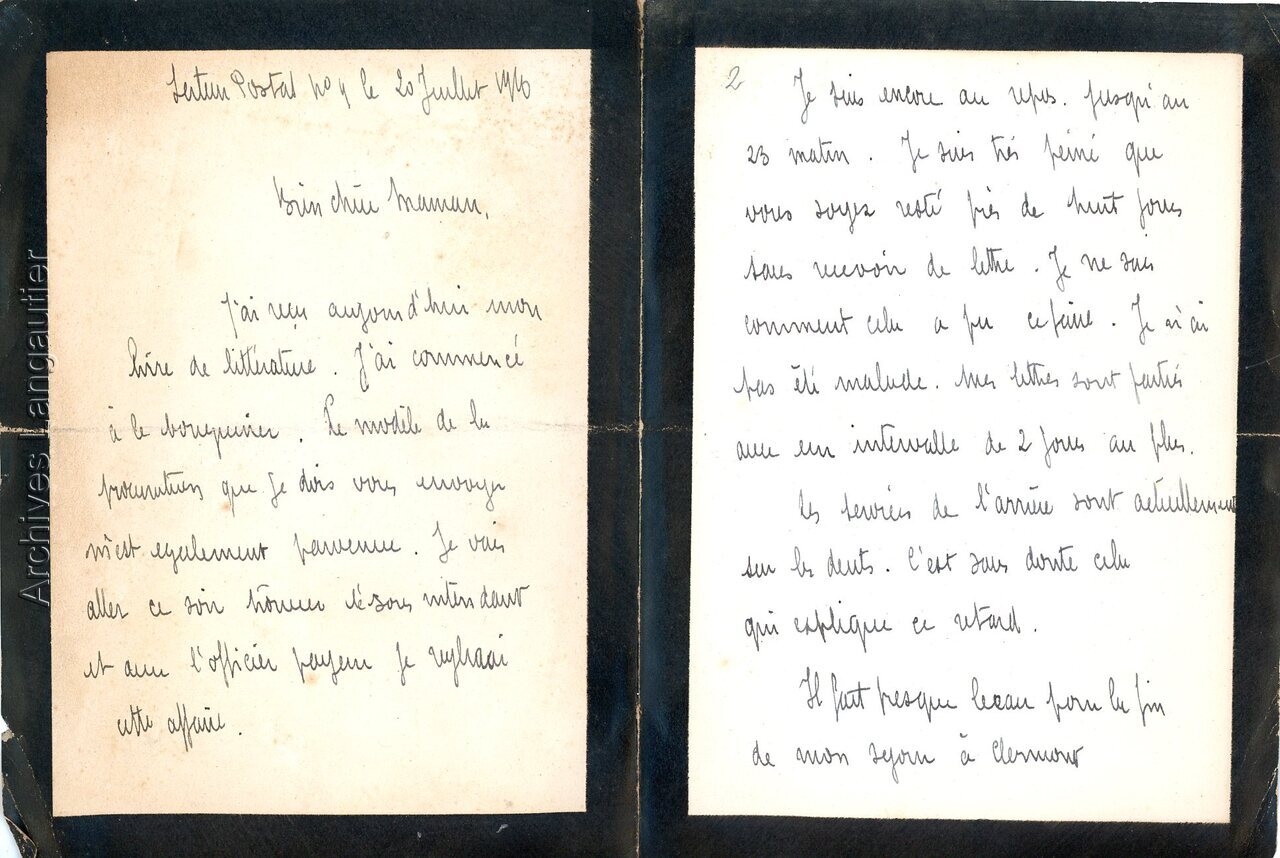 Secteur Postal no 4 le 20 Juillet 1916
Bien chère Maman,
J'ai reçu aujourd'hui mon
livre de littérature. J'ai commencé
à le bouquiner. Le modèle de la
procuration que je dois vous envoyer
m'est egalement parvenue. Je vais
aller ce soir trouver le sous intendant
et avec l'officier payeur je reglerai
cette affaire.
2
Je suis encore au repos. jusqu'au
23 matin. Je suis très peiné que
vous soyez resté près de huit jours
sans recevoir de lettre. Je ne sais
comment cela a pu ce faire. Je n'ai
pas été malade. Mes lettres sont parties
avec un intervalle de 2 jours au plus.
Les services de l'arrière sont actuellement
sur les dents. C'est sans doute cela
qui explique ce retard.
Il fait presque beau pour la fin
de mon sejour à Clermont
Archives Langautier